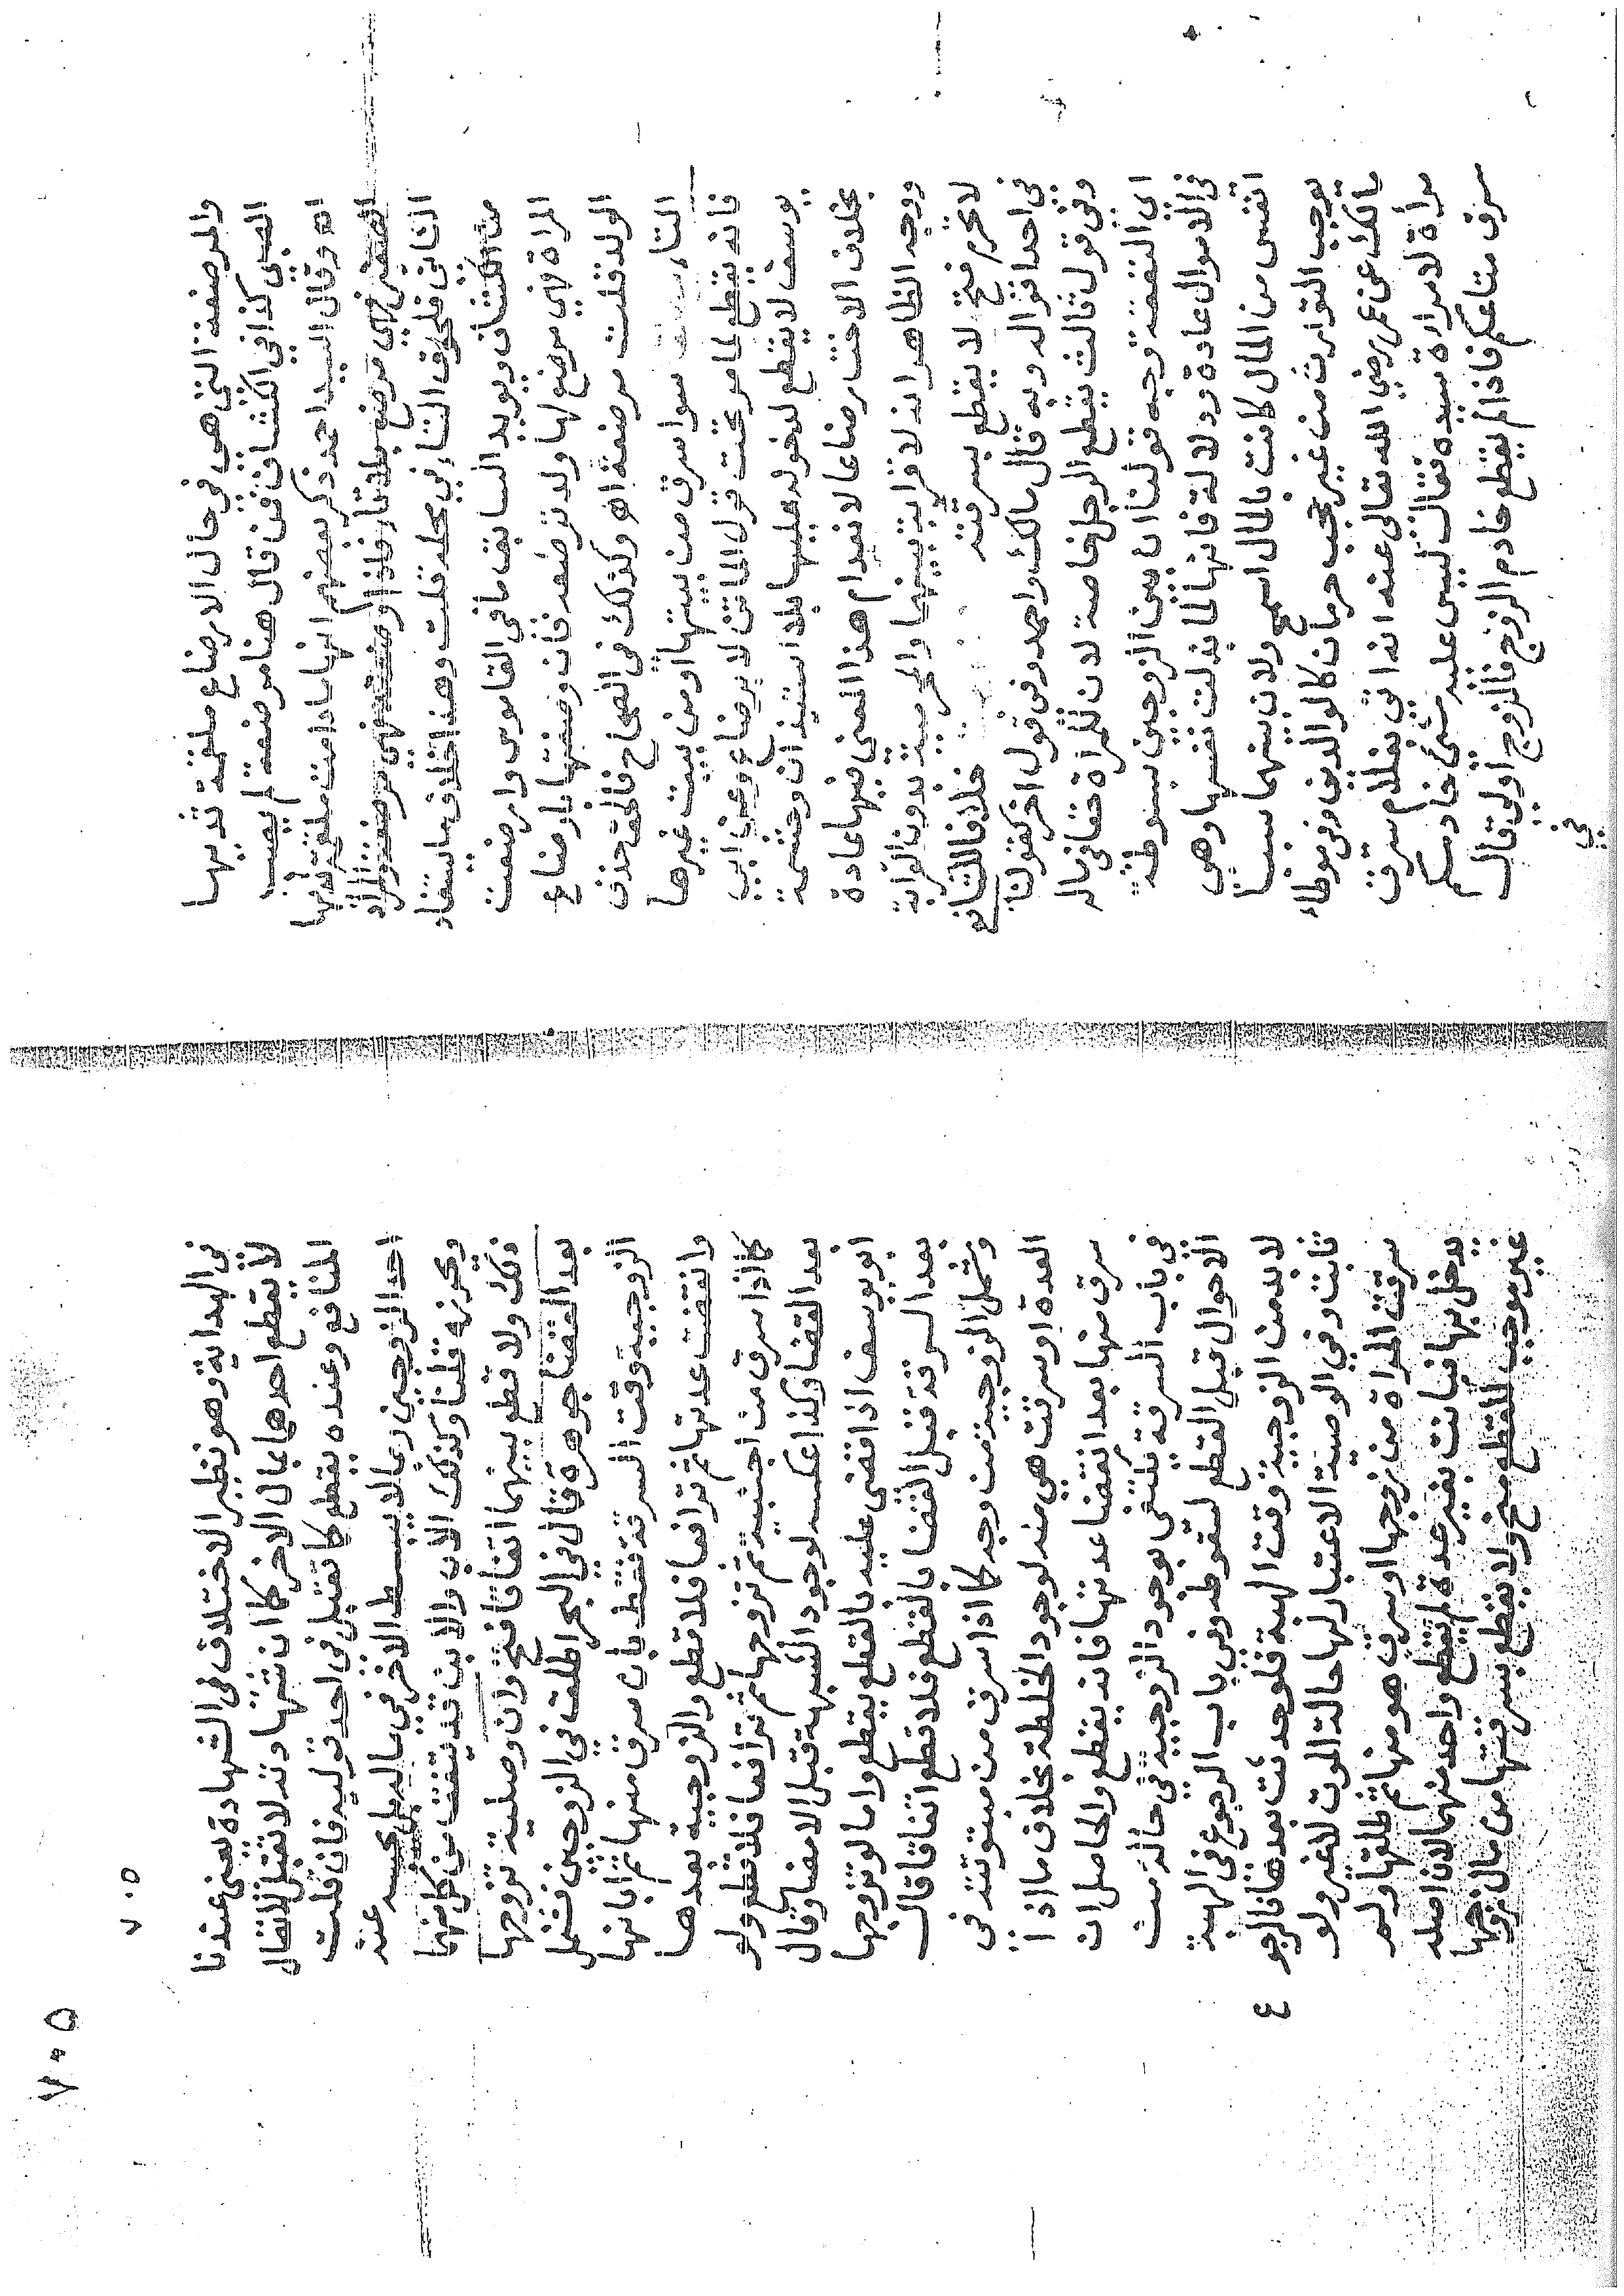 والمرضعة التي هي في حال الارضاع ملقمة ثديها
الصبي كذا في الكشاف فمن قال هنا مرضعة لم يصب
اه وقال السيد احمد ذكر بعضهم انها مادامت ملقمة ثديها
الصبي فهي مرضع بلا تاء فاذا ارضعته فهي مرضعة والمراد
الثاني فلحوق التاء في محله قلت وهذا خلاف ما استفاد
من الكشاف ويويد السابق ما في القاموس وارضعت
المراة فهي مرضع لها ولد ترضعه فان وصفتها بارضاع
الولد قلت مرضعة اهو وكذلك في الصحاح فالحق حذف
التاء سواء سرق من بيتها او من بيت غيرها
فانه يقطع لما مر تحت قول الماتن لا برضاع وعن ابي
يوسف لا يقطع لدخوله عليها بلا استيذان وحشمة
بخلاف الاخت رضاعا لانعدام هذا المعنى فيها عادة
ووجه الظاهر انه لا قرابة بينهما والمحرمية بدون القرابة
لا تحترم فتح لا يقطع بسرقته خلافا للشافع
في احد اقواله وبه قال مالك واحمد وفي قول اخر كقولنا
وفي قول ثالث يقطع الرجل خاصة لان للمراة حقا في ماله
اي النفقة وجه قولنا ان بين الزوجين بسوطة
في الاموال عادة ودلالة فانها لما بذلت نفسها وهي
انفس من المال كانت بالمال اسمح ولان بينهما سببا
يوجب التوارث من غير حجب حرمان كالوالدين وفي موطاء
مالك عن عمر رضي الله تعالى عنه انه اتي بغلام سرق
مراة لامراة سيده فقال ليس عليه شئ خادمكم
سرق متاعكم فاذا لم يقطع خادم الزوج فالزوج اولى قال
في
٧٠٥
٧٠٥
في الهداية وهو نظير الاختلاف في الشهادة يعني عندنا
لا يقطع احدهما بمال الاخر كما ان شهادته لا تقبل لاتصال
المنافع وعنده يقطع كما تقبل في احد قوليه فان قلت
احد الزوجين ربما لا يبسط الاخر في ماله بل يحبسه عنه
ويحرزه قلنا وكذلك الاب والابن قد يتفق من كل منهما
ذلك ولا قطع بينهما اتفاقا فتح وان وصلية تزوجها
بعد القضا جوهرة قال في البحر اطلق في الزوجين فشمل
الزوجية وقت السرقة فقط بان سرق منها ثم ابانها
وانقضت عدتها ثم ترافعا فلا قطع والزوجية بعدها
كما اذا سرق من اجنبية ثم تزوجها ثم ترافعا فلا قطع ولو
بعد القضا وكذا عكسه لوجود الشبهة قبل الامضا وقال
ابو يوسف اذا قضي عليه بالقطع يقطع واما لو تزوجها
بعد السرقة قبل القضا بالقطع فلا قطع اتفاقا قال
وشمل الزوجية من وجه كما اذا سرق من مبتوتته في
العدة او سرقت هي منه لوجود الخلطة بخلاف ما اذا
سرق منها بعد انقضا عدتها فانه يقطع والحاصل ان
في باب السرقة يكتفى بوجود الزوجية في حالة من
الاحوال قبل القطع لسقوطه وفي باب الرجوع في الهبة
لا بد من الزوجية وقت الهبة فلو حدثت بعدها فالرجو
ع
ثابت وفي الوصية الاعتبار لها حالة الموت لا غير ولو
سرقت المراة من زوجها او سرق هو منها ثم طلقها ولم
يدخل بها فبانت بغير عدة لم يقطع واحد منهما لان اصله
غير موجب للقطع منح ولا يقطع بسرقتها من مال زوجها